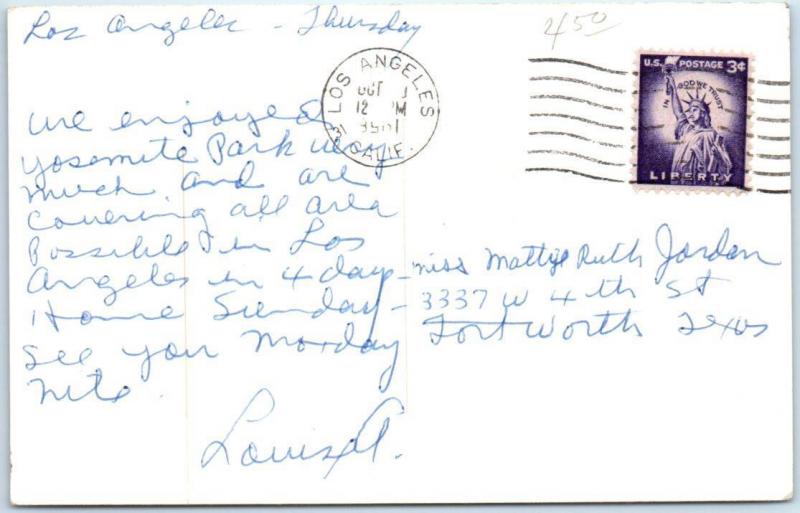 Los Angeles - Thursday
450
LOS ANGELES
OCT
12 PM
CALIF.
U.S. POSTAGE 3¢
IN GOD WE TRUST
LIBERTY
We enjoyed
Yosemite Park very
much and are
covering all area
possible in Los
Angeles in 4 days -
Home Sunday -
See you Monday
nite.
Louise A.
Miss Mattye Ruth Jordan
3337 W 4th St
Fort Worth Texas